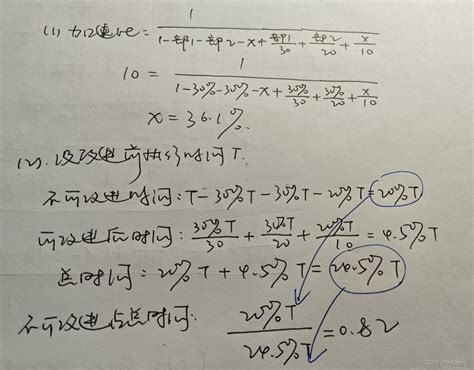 (1) 加速比 = 1 / (1-部1-部2-x+部1/30+部2/20+x/10)
10 = 1 / (1-30%-30%-x+30%/30+30%/20+x/10)
x = 36.1%.
(2). 设改进前执行时间T.
不可改进时间: T-30%T-30%T-20%T=20%T
可改进后时间: 30%T/30 + 30%T/20 + 20%T/10 = 4.5%T
总时间 = 20%T + 4.5%T = 24.5%T
不可改进占总时间: 20%T/24.5%T = 0.82